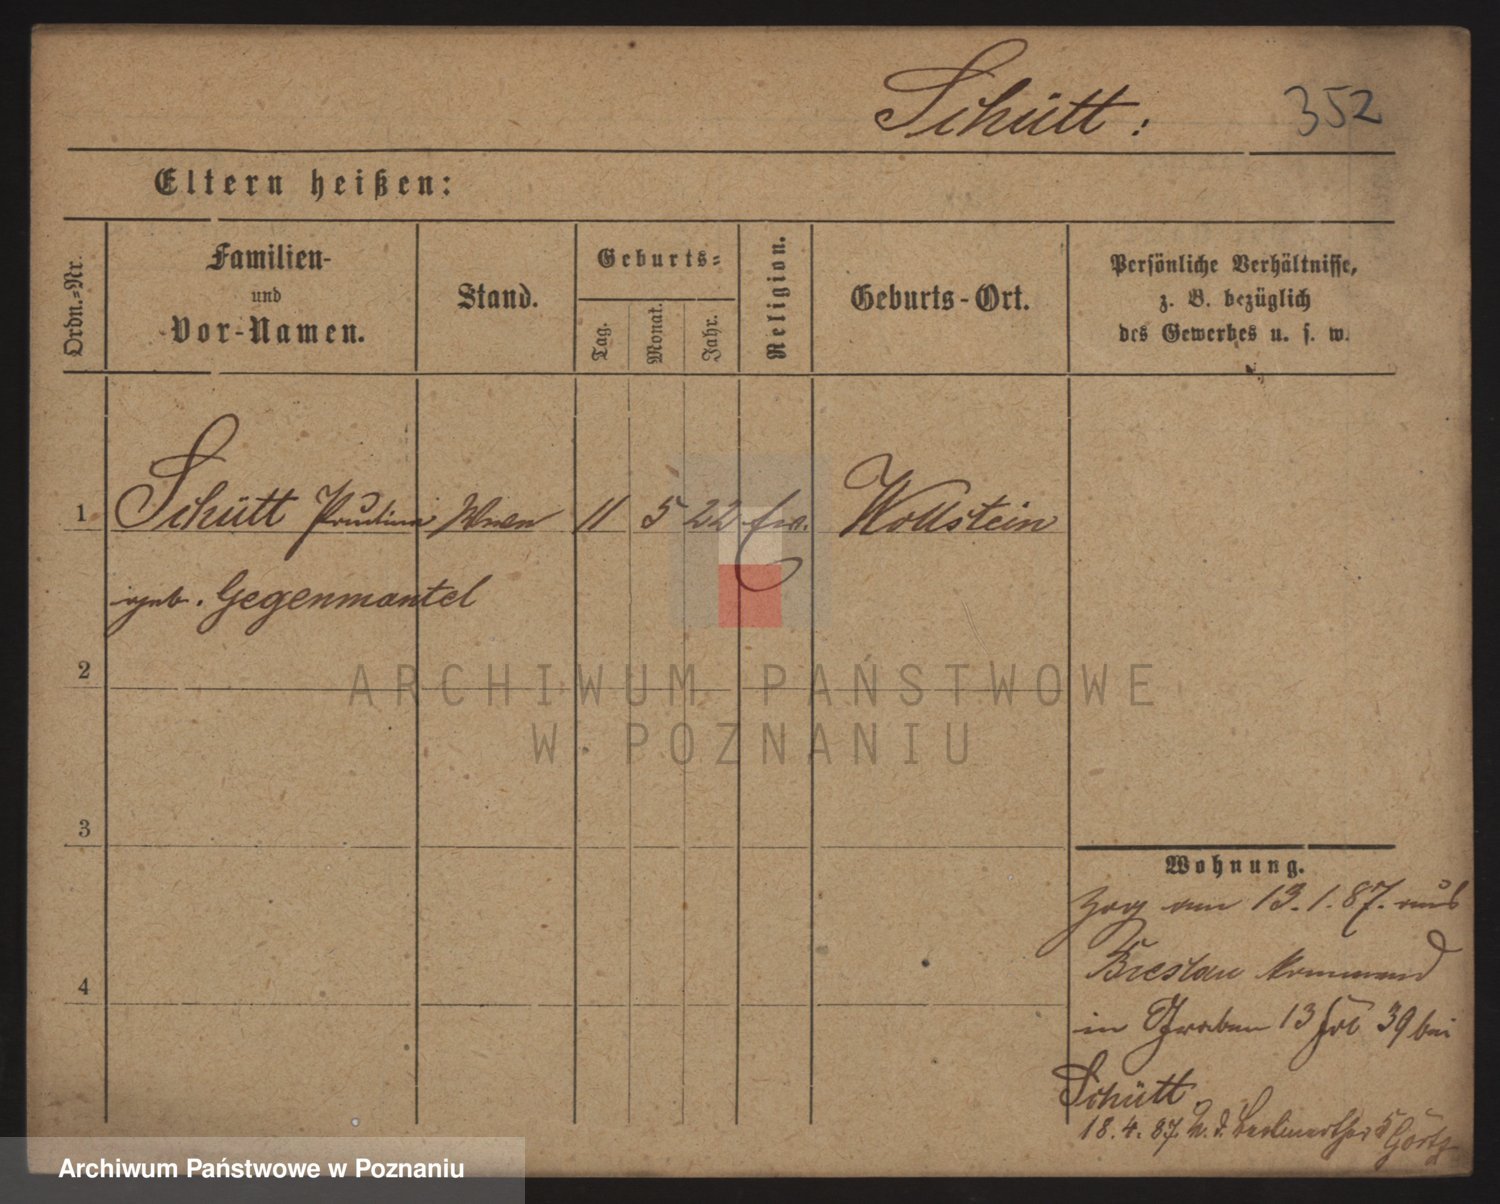 Schütt:
352
Eltern heißen:
Ordn.-Nr.
Familien-
und
Vor-Namen.
Stand.
Geburts-
Tag.
Monat.
Jahr.
Religion.
Geburts-Ort.
Persönliche Verhältnisse,
z. B. bezüglich
des Gewerbes u. s. w.
1 Schütt Wwe 11 5 22 Wollstein
geb. Gegenmantel
2
ARCHIWUM PAŃSTWOWE
W POZNANIU
3
Wohnung.
Zog am 13.1.87. aus
Breslau kommend
4
in Graben 13 39 bei
Schütt.
18.4.87.
Archiwum Państwowe w Poznaniu